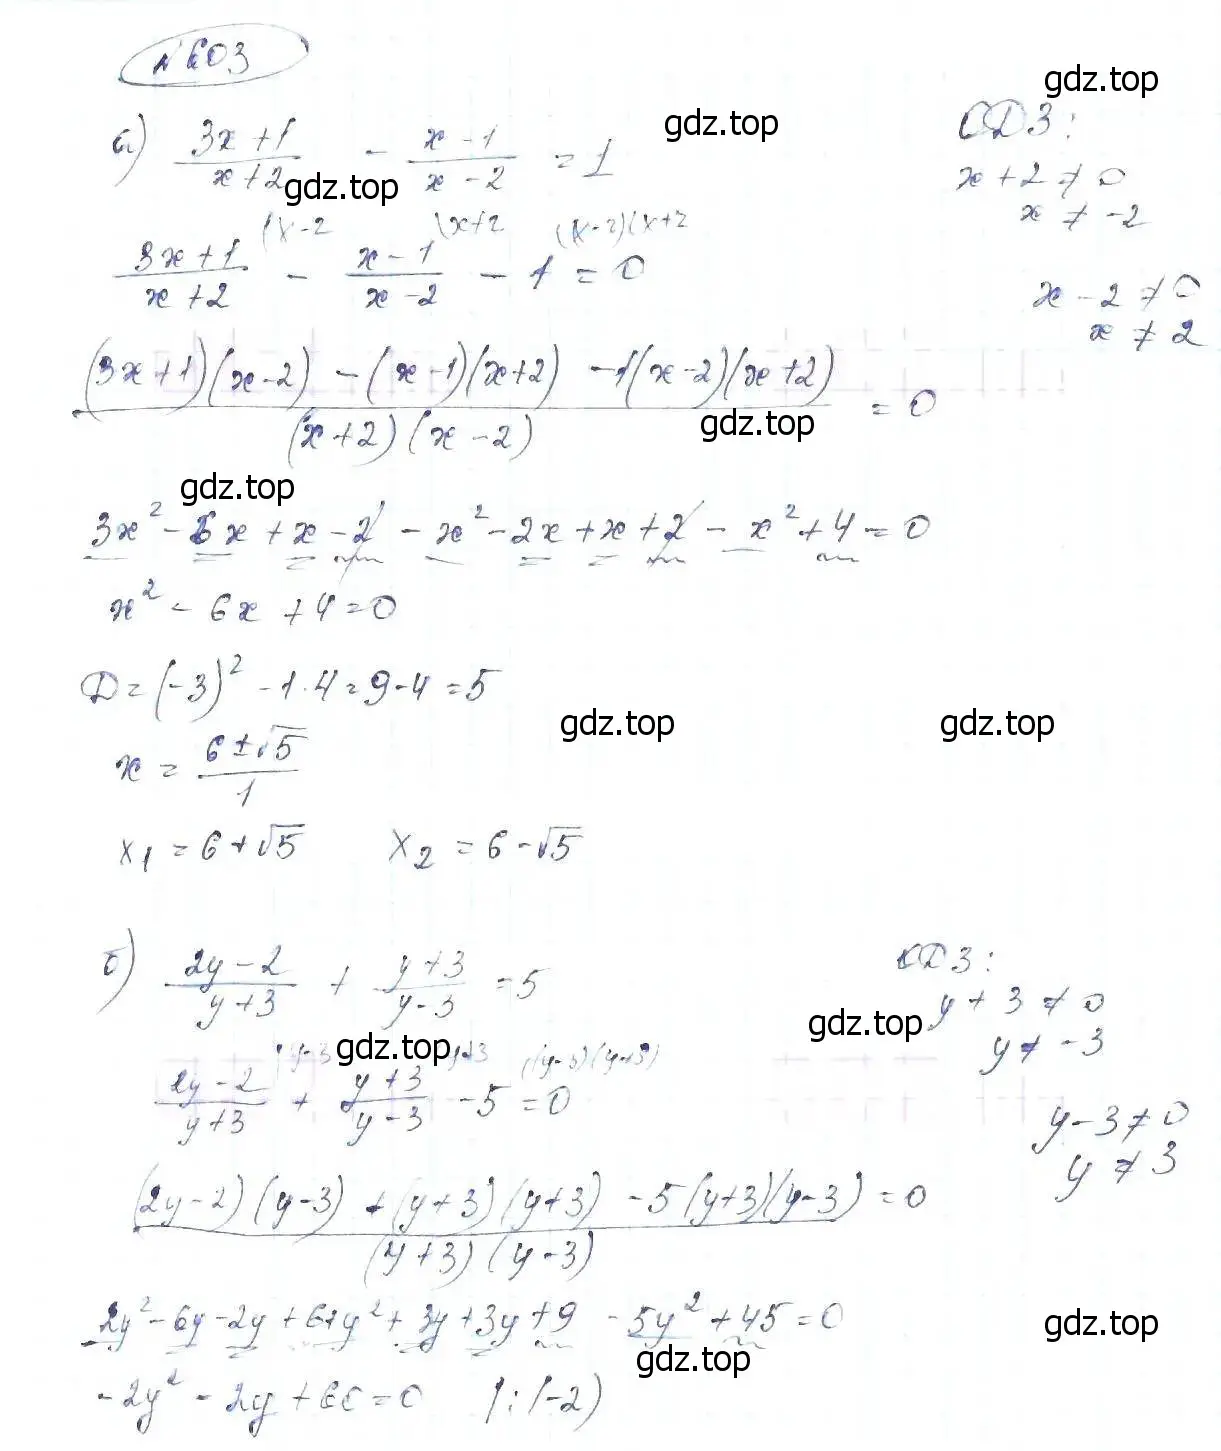 №603
gdz.top
а) (3x+1)/(x+2) - (x-1)/(x-2) = 1
ОДЗ:
gdz.top
gdz.top
x+2≠0
x ≠ -2
(x-2 \x+2 (x-2)(x+2
(3x+1)/(x+2) - (x-1)/(x-2) - 1 = 0
x-2≠0
x≠2
((3x+1)(x-2) - (x-1)(x+2) - 1(x-2)(x+2))/((x+2)(x-2)) = 0
gdz.top
gdz.top
3x² - 6x + x - 2 - x² - 2x + x + 2 - x² + 4 = 0
x² - 6x + 4 = 0
D = (-3)² - 1·4 = 9-4 = 5
gdz.top gdz.top
x = (6±√5)/1
x₁ = 6+√5 x₂ = 6-√5
б) (2y-2)/(y+3) + (y+3)/(y-3) = 5
ОДЗ:
y+3≠0
gdz.top
y≠-3
gdz.top
y-3 y+3 (y-3)(y+3)
(2y-2)/(y+3) + (y+3)/(y-3) - 5 = 0
y-3≠0
y≠3
((2y-2)(y-3) + (y+3)(y+3) - 5(y+3)(y-3))/((y+3)(y-3)) = 0
2y² - 6y - 2y + 6 + y² + 3y + 3y + 9 - 5y² + 45 = 0
gdz.top
gdz.top
-2y² - 2y + 60 = 0 |:(-2)